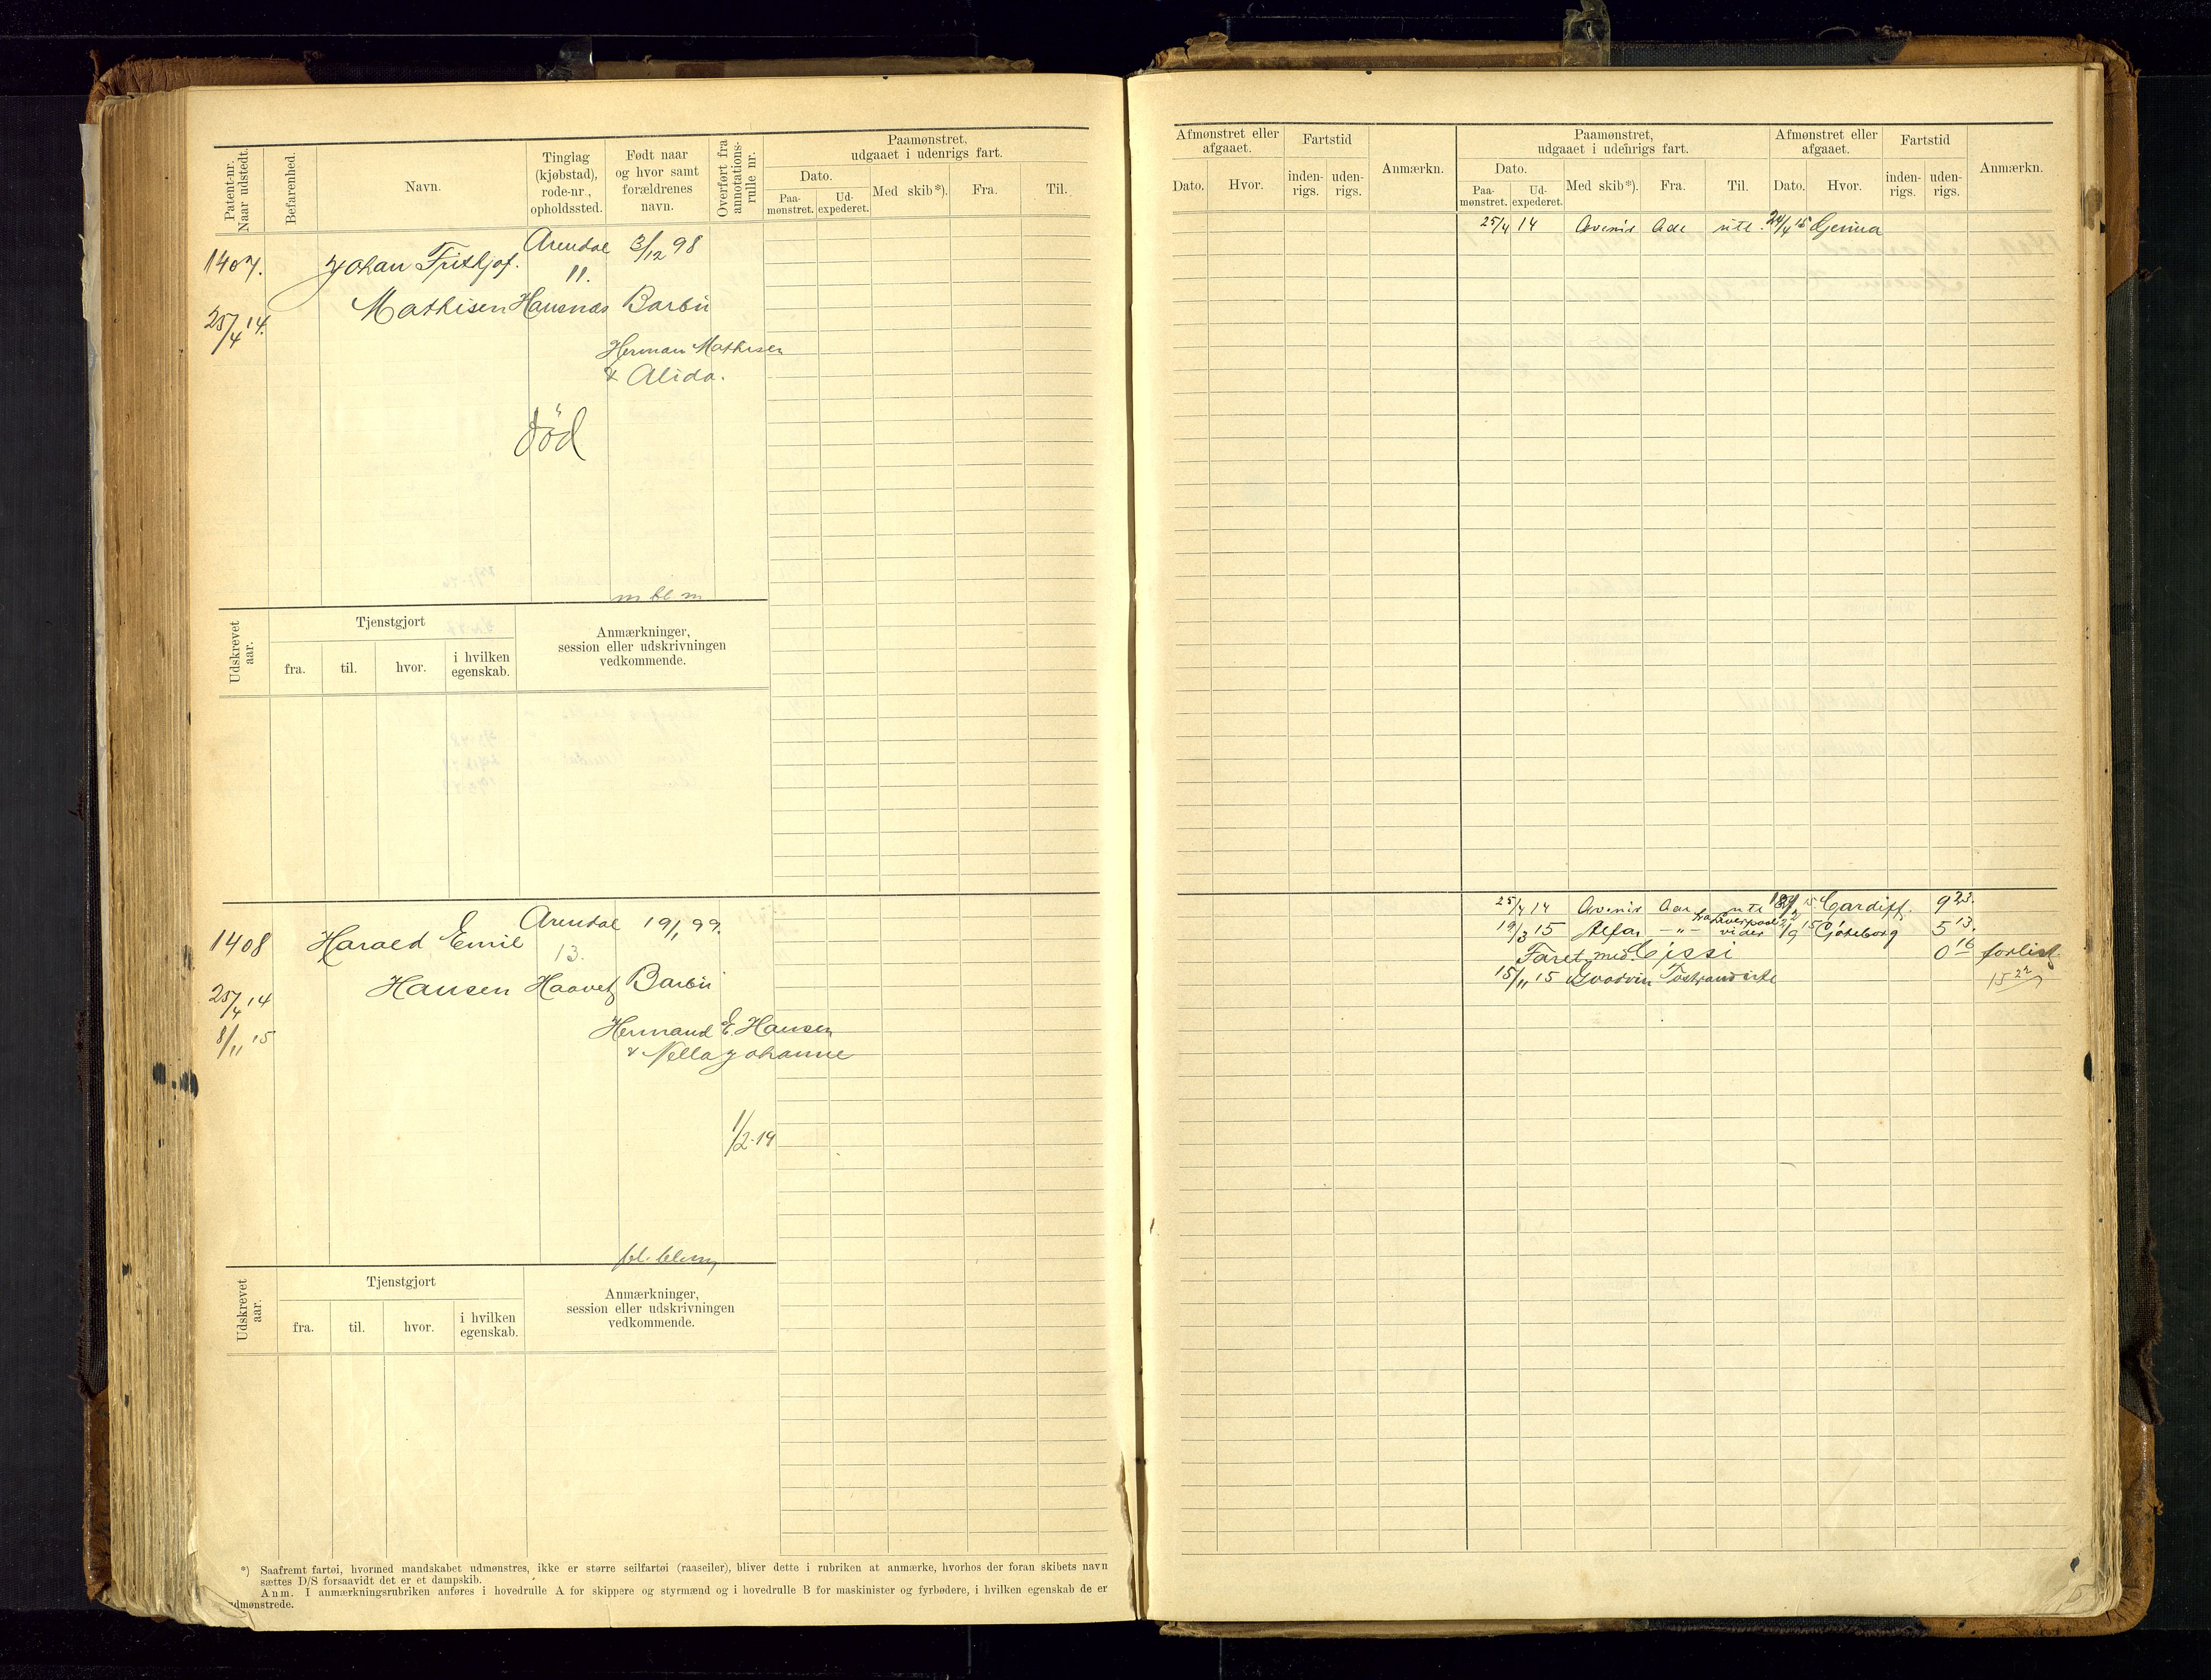 Patent-nr. Naar udstedt.
Befarenhed.
Navn.
Tinglag (kjøbstad), rode-nr., opholdssted.
Født naar og hvor samt forældrenes navn.
Overført fra annotations-rulle nr.
Paamønstret, udgaaet i udenrigs fart.
Dato.
Paa-mønstret.
Ud-expederet.
Med skib*).
Fra.
Til.
1407.
Johan Frithjof.
Arendal
3/12 98
11.
25/4 14.
Mathisen
Barbu
Herman Mathisen
& Alida.
død
m bl m
Udskrevet aar.
Tjenstgjort
fra.
til.
hvor.
i hvilken egenskab.
Anmærkninger, session eller udskrivningen vedkommende.
1408
Harald Emil
Arendal
19/1 99.
13.
Hansen
Haavet
Barbu
25/4 14
8/11 15
Hermand E. Hansen
& Nella Johanne
1/2-19
Udskrevet aar.
Tjenstgjort
fra.
til.
hvor.
i hvilken egenskab.
Anmærkninger, session eller udskrivningen vedkommende.
*) Saafremt fartøi, hvormed mandskabet udmønstres, ikke er større seilfartøi (raaseiler), bliver dette i rubriken at anmærke, hvorhos der foran skibets navn
sættes D/S forsaavidt det er et dampskib.
Anm. I anmærkningsrubriken anføres i hovedrulle A for skippere og styrmænd og i hovedrulle B for maskinister og fyrbødere, i hvilken egenskab de er
udmønstrede.
Afmønstret eller afgaaet.
Dato.
Hvor.
Fartstid
inden-rigs.
uden-rigs.
Anmærkn.
Paamønstret, udgaaet i udenrigs fart.
Dato.
Paa-mønstret.
Ud-expederet.
Med skib*).
Fra.
Til.
Afmønstret eller afgaaet.
Dato.
Hvor.
Fartstid
inden-rigs.
uden-rigs.
Anmærkn.
25/4 14 Avenir Ade ute. 24/4 15 Genua
25/4 14 Avenir Aar ute 15 Cardiff. 9 23.
19/3 15 Alfar —„— fra Liverpool vider 2/9 15 Göteborg 5 13.
Faret med Cissi 0 16 forlist
15/11 15 Goodvin Tostrand ute 15 22